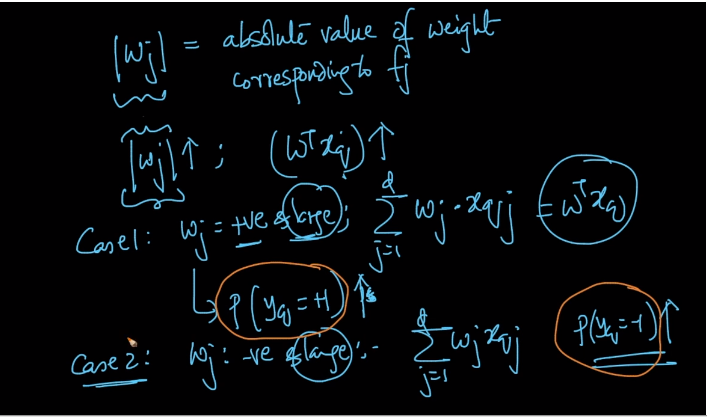 |wj| = absolute value of weight
corresponding to fj
|wj| ↑ ; (wᵀxq) ↑
Case 1: wj = +ve & large; ∑_{j=1}^{d} wj · xqj = wᵀxq
↳ P(yq = +1) ↑
Case 2: wj : -ve & large; - ∑_{j=1}^{d} wj xqj P(yq = -1) ↑